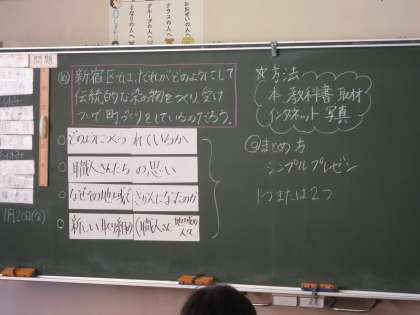 おおぜいの人へ
クラスの人へ
グループの人へ
となりの人へ
問題
め 新宿区では、だれがどのようにして
伝統的な染め物をつくり、受け
ついで町づくりをしているのだろう。
どのようにつくられているか
職人さんたちの思い
なぜこの地域でさかんになったのか
新しい取り組み（職人さん 地域の人々）
☆方法
本 教科書 取材
インタネット 写真
まとめ方
シンプルプレゼン
1つまたは2つ